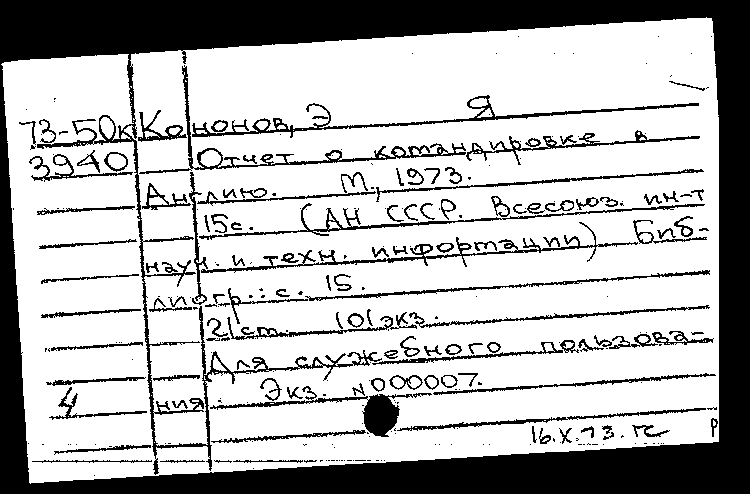 73-50к Кононов, Э Я
3940 Отчет о командировке в
Англию. М., 1973.
15с. (АН СССР. Всесоюз. ин-т
науч. и техн. информации) Биб-
лиогр.: с. 15.
2/ст. 101экз.
Для служебного пользова-
4 ния. Экз. N000007.
16.X.73. гс Р